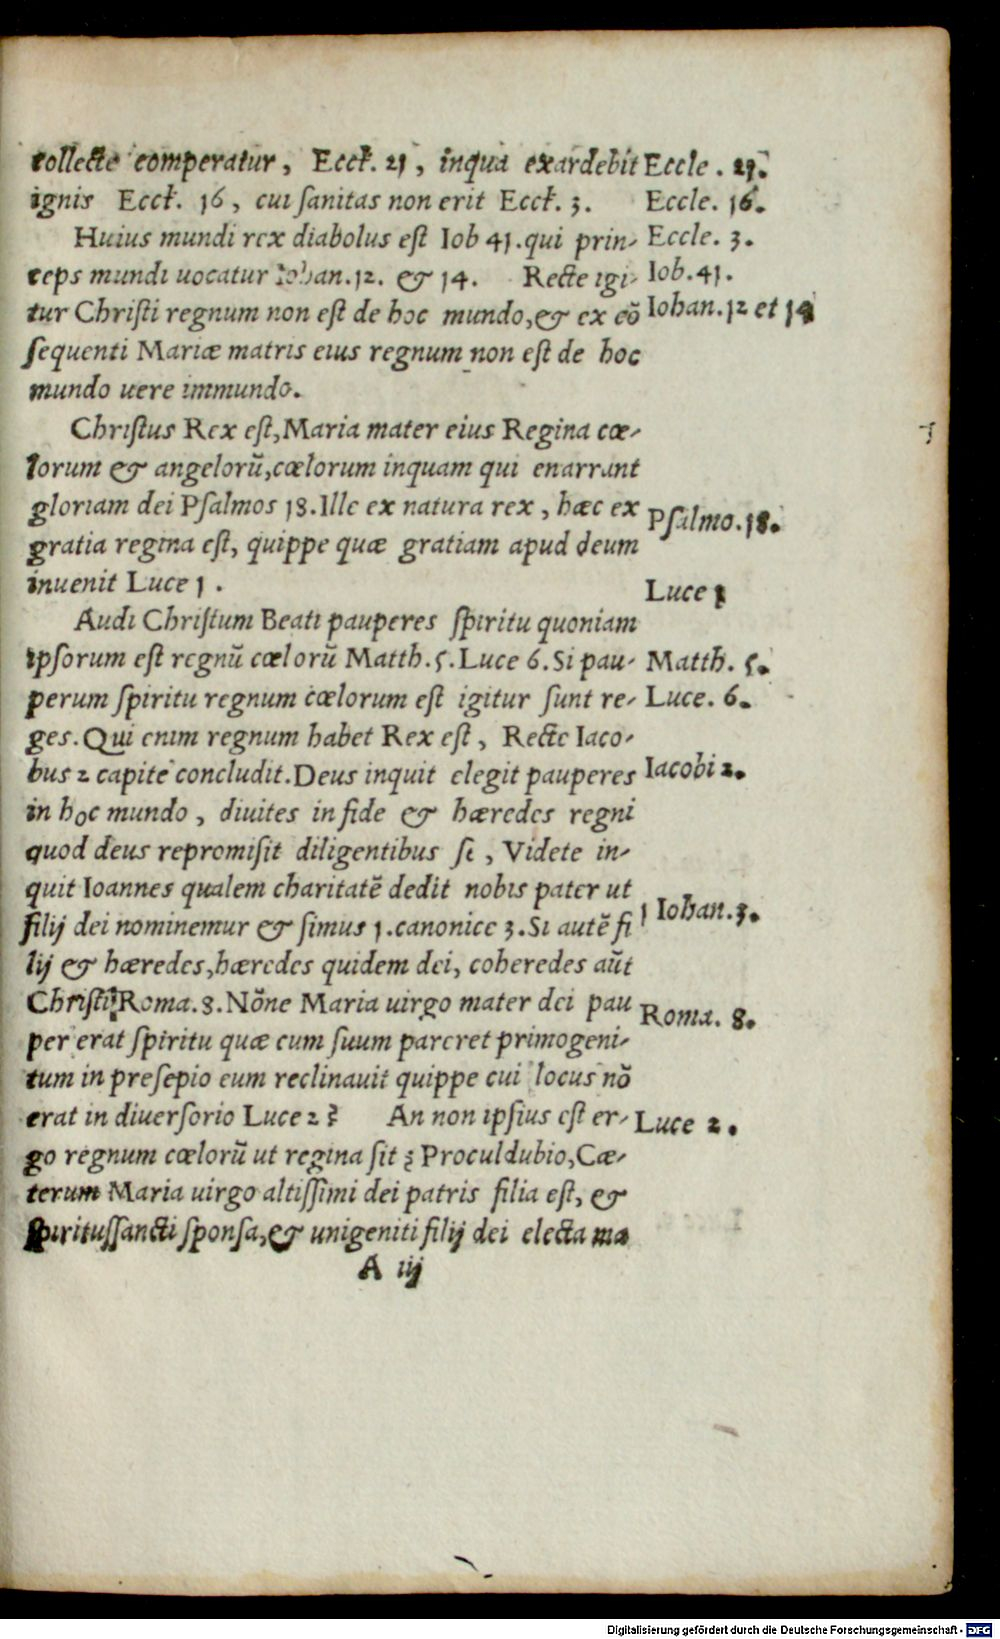 collecte comperatur, Eccł. 21, inqua exardebit
ignis Eccł. 16, cui ſanitas non erit Eccł. 3.
Huius mundi rex diabolus eſt Iob 41. qui prin-
ceps mundi uocatur Iohan. 12. & 14. Recte igi-
tur Chriſti regnum non eſt de hoc mundo, & ex cō
ſequenti Mariæ matris eius regnum non eſt de hoc
mundo uere immundo.
Chriſtus Rex eſt, Maria mater eius Regina cœ-
lorum & angelorū, cœlorum inquam qui enarrant
gloriam dei Pſalmos 18. Ille ex natura rex, hæc ex
gratia regina eſt, quippe quæ gratiam apud deum
inuenit Luce 1.
Audi Chriſtum Beati pauperes ſpiritu quoniam
ipſorum eſt regnū cœlorū Matth. 5. Luce 6. Si pau-
perum ſpiritu regnum cœlorum eſt igitur ſunt re-
ges. Qui enim regnum habet Rex eſt, Recte Iaco-
bus 2 capite concludit. Deus inquit elegit pauperes
in hoc mundo, diuites in fide & hæredes regni
quod deus repromiſit diligentibus ſe, Videte in-
quit Ioannes qualem charitatē dedit nobis pater ut
filij dei nominemur & ſimus 1. canonice 3. Si autē fi
lij & hæredes, hæredes quidem dei, coheredes aūt
Chriſti Roma. 8. Nōne Maria uirgo mater dei pau
per erat ſpiritu quæ cum ſuum pareret primogeni-
tum in preſepio eum reclinauit quippe cui locus nō
erat in diuerſorio Luce 2? An non ipſius eſt er-
go regnum cœlorū ut regina ſit? Proculdubio, Cæ-
terum Maria uirgo altiſſimi dei patris filia eſt, &
ſpirituſſancti ſponſa, & unigeniti filij dei electa ma
A iij
Eccle. 21.
Eccle. 16.
Eccle. 3.
Iob. 41.
Iohan. 12 et 14
Pſalmo. 18.
Luce 1
Matth. 5.
Luce. 6.
Iacobi 2.
1 Iohan. 3.
Roma. 8.
Luce 2.
Digitalisierung gefördert durch die Deutsche Forschungsgemeinschaft - DFG